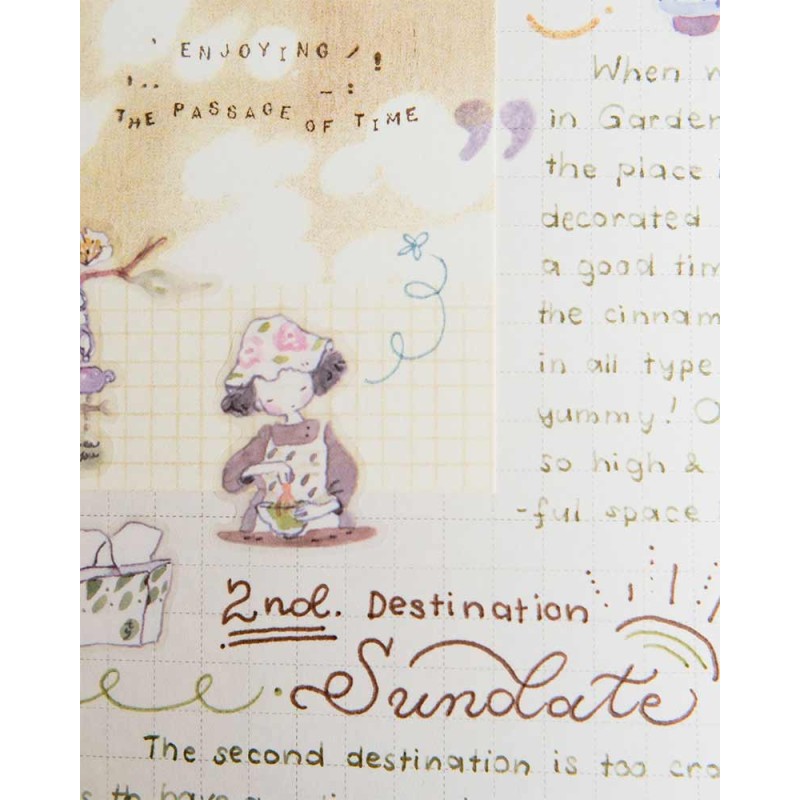 ENJOYING
THE PASSAGE OF TIME
When
in Garden
the place
decorated
a good
the cinnam
in all type
yummy!
so high &
-ful space
2nd. Destination
Sundate
The second destination is too cro